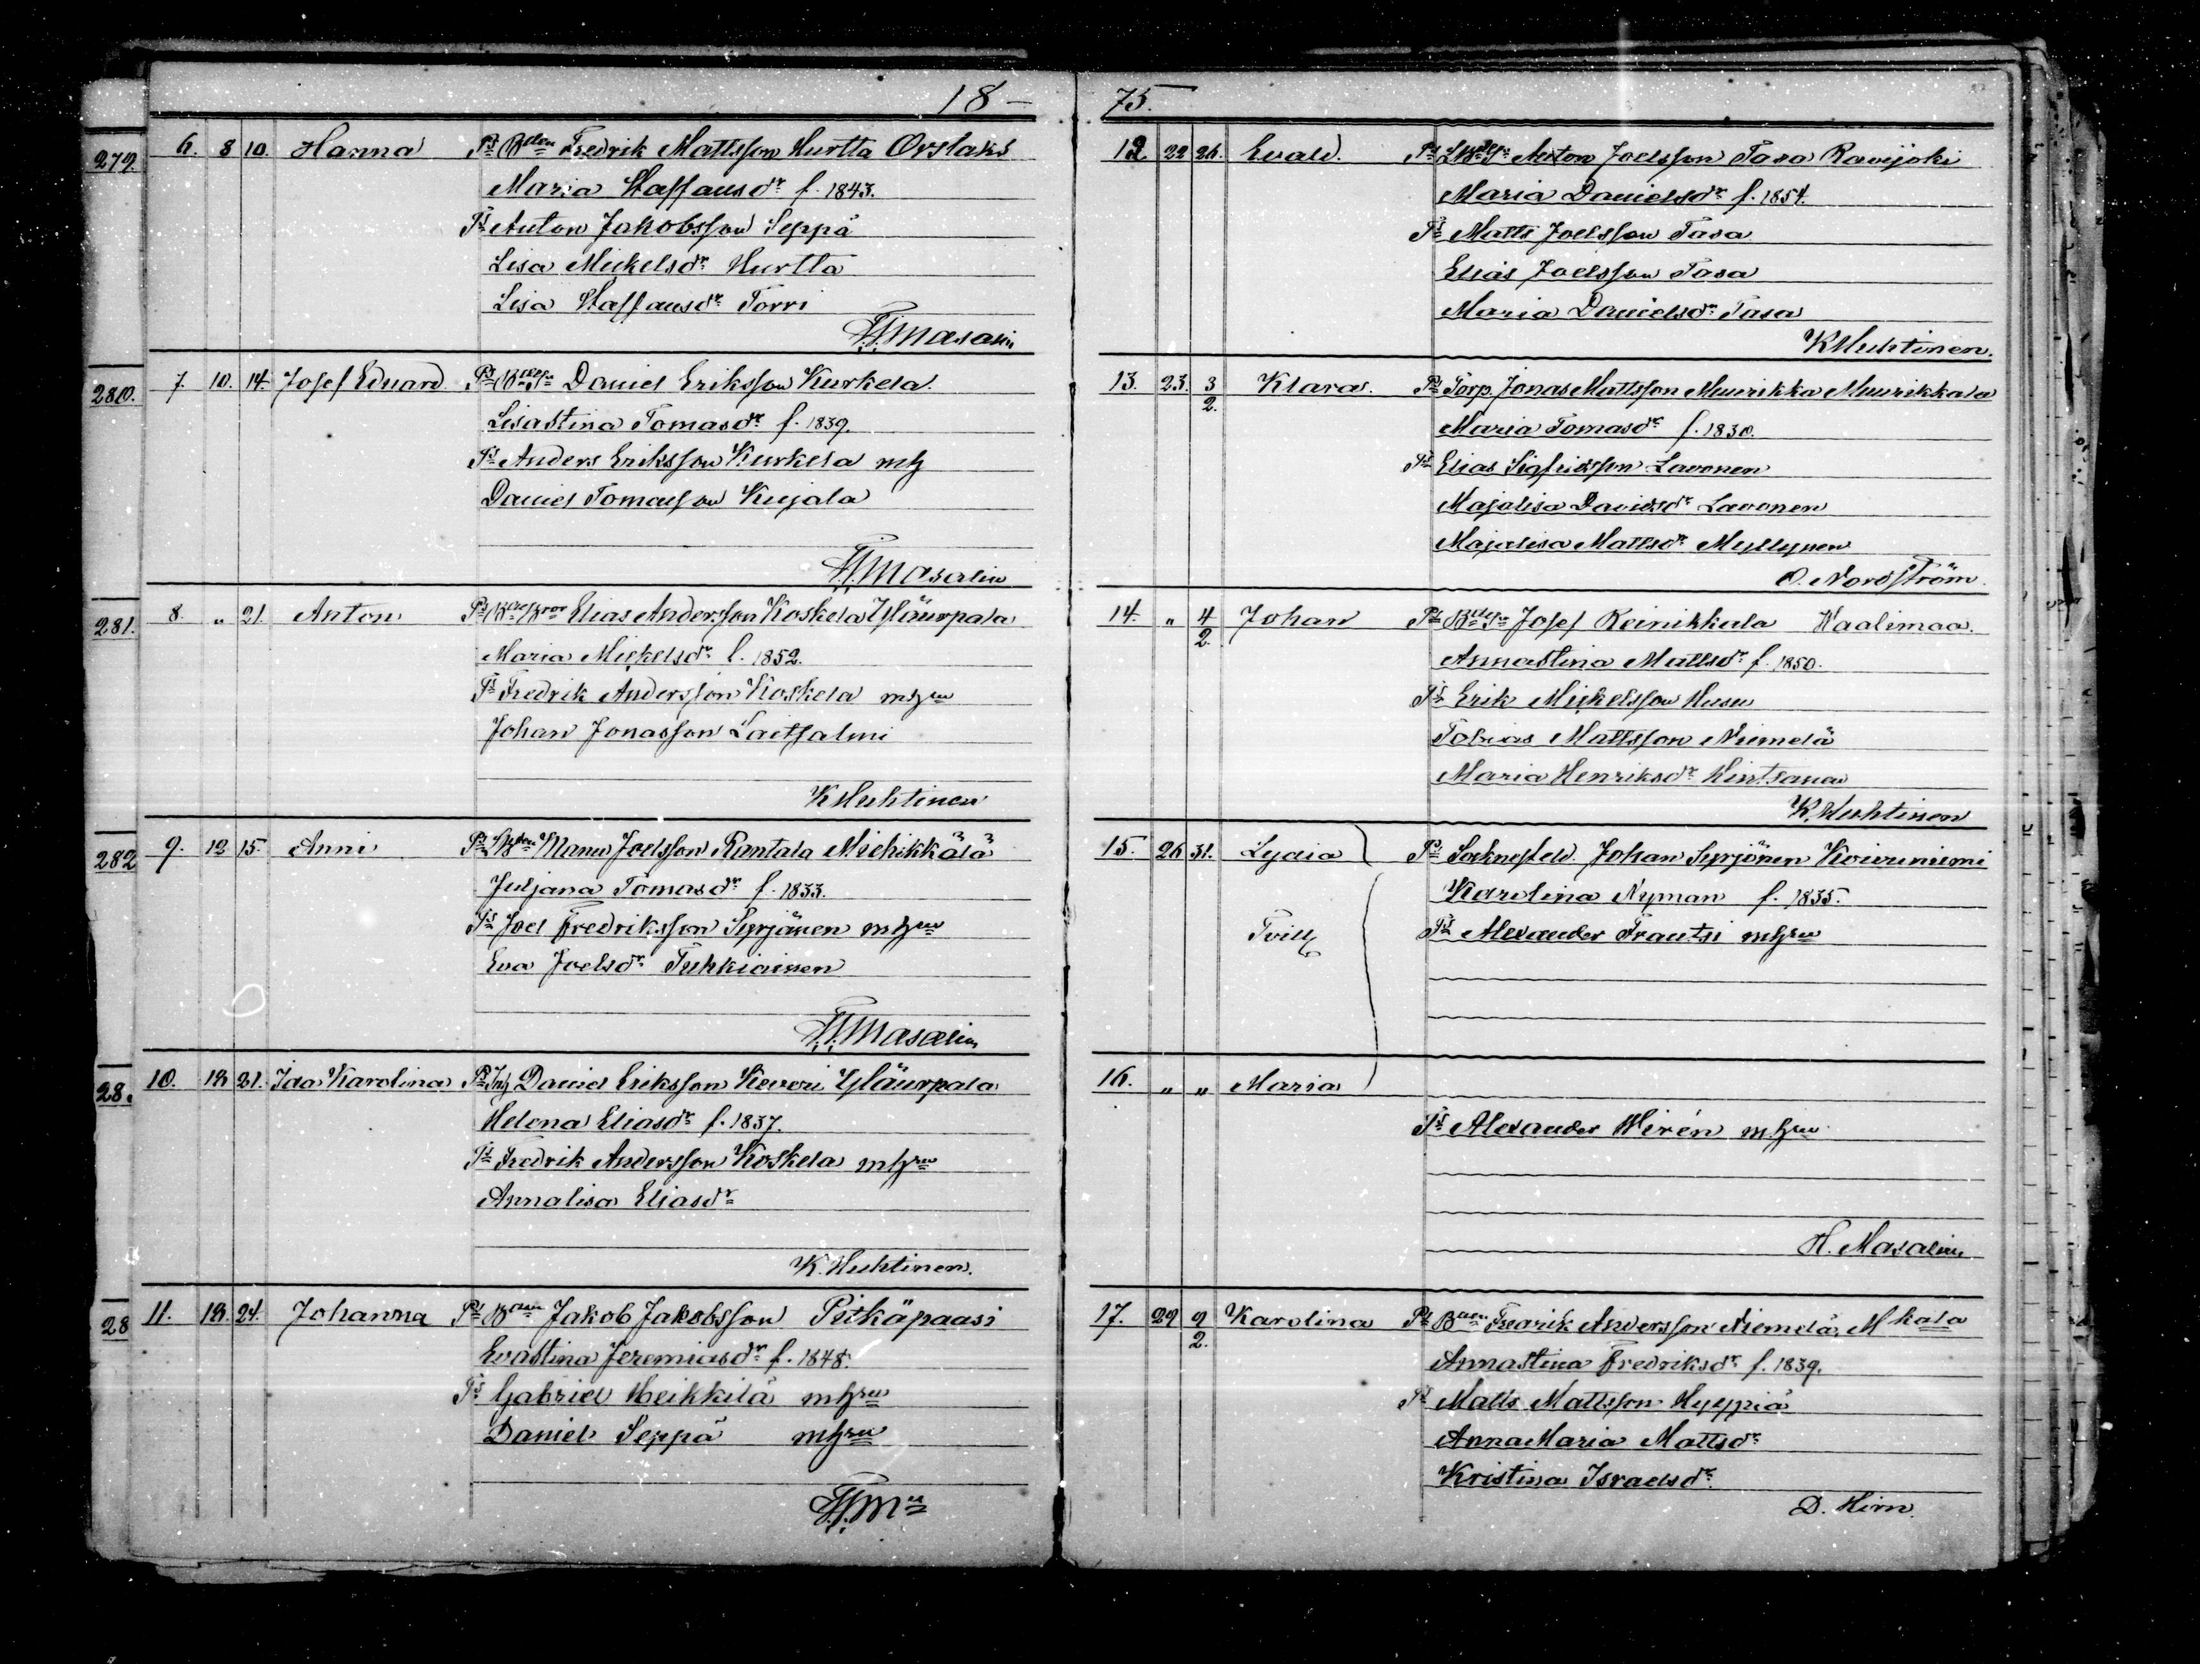 18 — 75.
279. 6. 8 10. Hanna Ps Bden Fredrik Mattsson Hurtta Orslaks
Maria Staffansdr f. 1843.
Ts Anton Jakobsson Seppä
Lisa Mickelsdr Hurtta
Lisa Staffansdr Torri
H. Masalin
280. 7. 10. 14. Josef Eduard Ps Daniel Eriksson Kurkela.
Lisastina Tomasdr f. 1839.
Ts Anders Eriksson Kurkela mh
Daniel Tomasson Kujala
H. Masalin
281. 8. „ 21. Anton Ps Elias Andersson Koskela Yläurpala
Maria Mickelsdr f. 1852.
Ts Fredrik Andersson Koskela mhru
Johan Jonasson Laitsalmi
K Huhtinen
282 9. 12 15. Anni Ps Manu Joelsson Rantala Miehikkälä
Juljana Tomasdr f. 1833.
Ts Joel Fredriksson Syrjänen mhru
Eva Joelsdr Tuhkiainen
H. Masalin
28. 10. 18 21. Ida Karolina Ps Inh Daniel Eriksson Keveri Yläurpala
Helena Eliasdr f. 1837.
Ts Fredrik Andersson Koskela mhru
Annalisa Eliasdr
K. Huhtinen.
28 11. 18. 24. Johanna Ps Bden Jakob Jakobsson Pitkäpaasi
Evastina Jeremiasdr f. 1848.
Ts Gabriel Heikkilä mhru
Daniel Seppä mhru
H. Mn
12 22 26. Evald. Ps Anton Joelsson Tasa Ravijoki
Maria Danielsdr f. 1854.
Ts Matts Joelsson Tasa
Elias Joelsson Tasa
Maria Danielsdr Tasa
K Huhtinen.
13. 23. 3/2. Klara. Ps Torp. Jonas Mattsson Muurikka Muurikkala
Maria Tomasdr f. 1830.
Ts Elias Sigfridsson Lavonen
Majalisa Davidsdr Lavonen
Majalisa Mattsdr Myllynen
O. Nordström.
14. „ 4/2. Johan Ps Josef Reinikkala Waalimaa.
Annastina Mattsdr f. 1850.
Ts Erik Mickelsson Husu
Tobias Mattsson Niemelä
Maria Henriksdr Hintsanen
K. Huhtinen
15. 26 31. Lydia Ps Johan Syrjönen Koivuniemi
Karolina Nyman f. 1835.
Tvill Ts Alexander Frantsi mhru
16. „ „ Maria
Ts Alexander Wirén mhru
H. Masalin
17. 29 9/2. Karolina Ps Bden Fredrik Andersson Niemelä, Mkala
Annastina Fredriksdr f. 1839.
Ts Matts Mattsson Hyyppiä
Anna Maria Mattsdr
Kristina Israelsdr
D. Hirn.